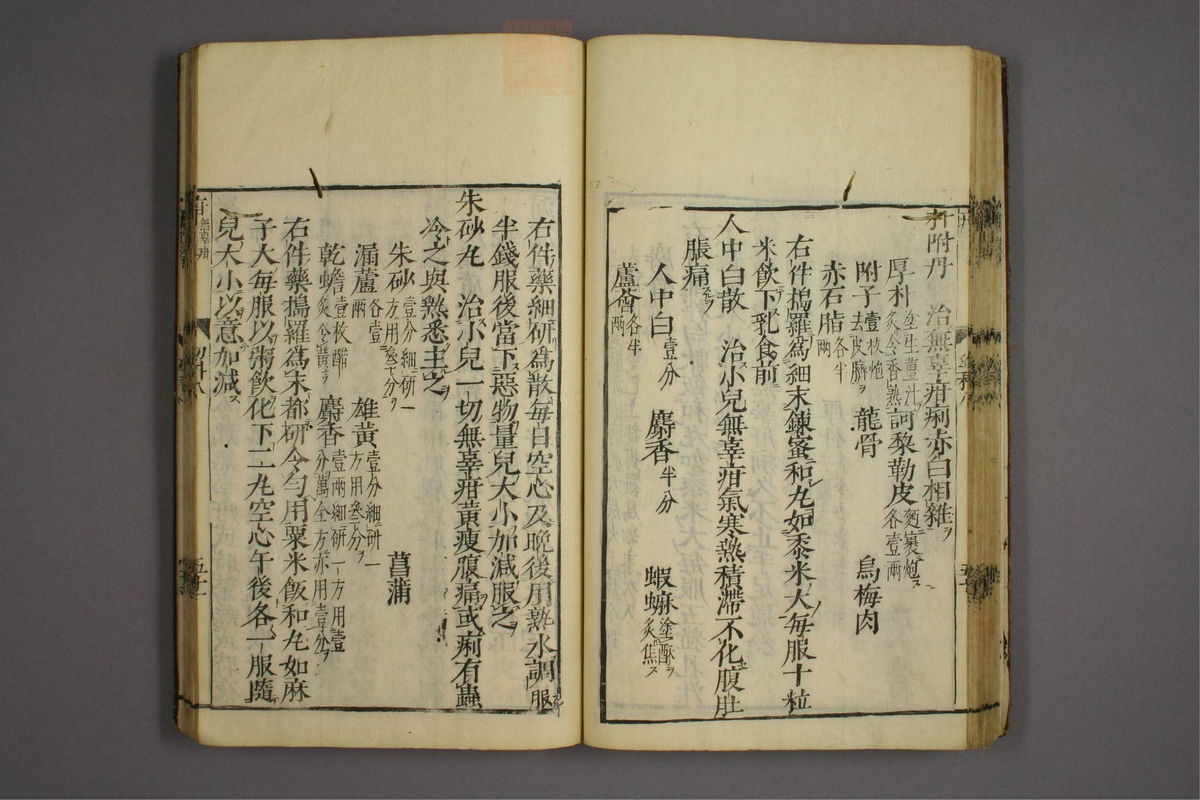 朴附丹　治無辜疳痢赤白相雜
厚朴塗生薑汁炙令香熟　訶黎勒皮麪裹炮各壹兩
附子壹枚炮去皮臍　龍骨　烏梅肉
赤石脂各半兩
右件搗羅爲細末鍊蜜和丸如黍米大每服十粒
米飲下乳食前
人中白散　治小兒無辜疳氣寒熱積滯不化腹肚
脹痛
人中白壹分　麝香半分　蝦蟆塗酥炙焦
蘆薈各半兩
右件藥細研爲散每日空心及晚後用熟水調服
半錢服後當下惡物量兒大小加減服之
朱砂丸　治小兒一切無辜疳黃瘦腹痛或痢有蟲
冷之與熱悉主之
朱砂壹分細研一方用叁分　雄黃壹分細研一方用叁分　菖蒲
漏蘆各壹兩
乾蟾壹枚酥炙令黃　麝香壹兩細研一方用壹分萬全方亦用壹分
右件藥搗羅爲末都研令勻用粟米飯和丸如麻
子大每服以粥飲化下二丸空心午後各一服隨
兒大小以意加減